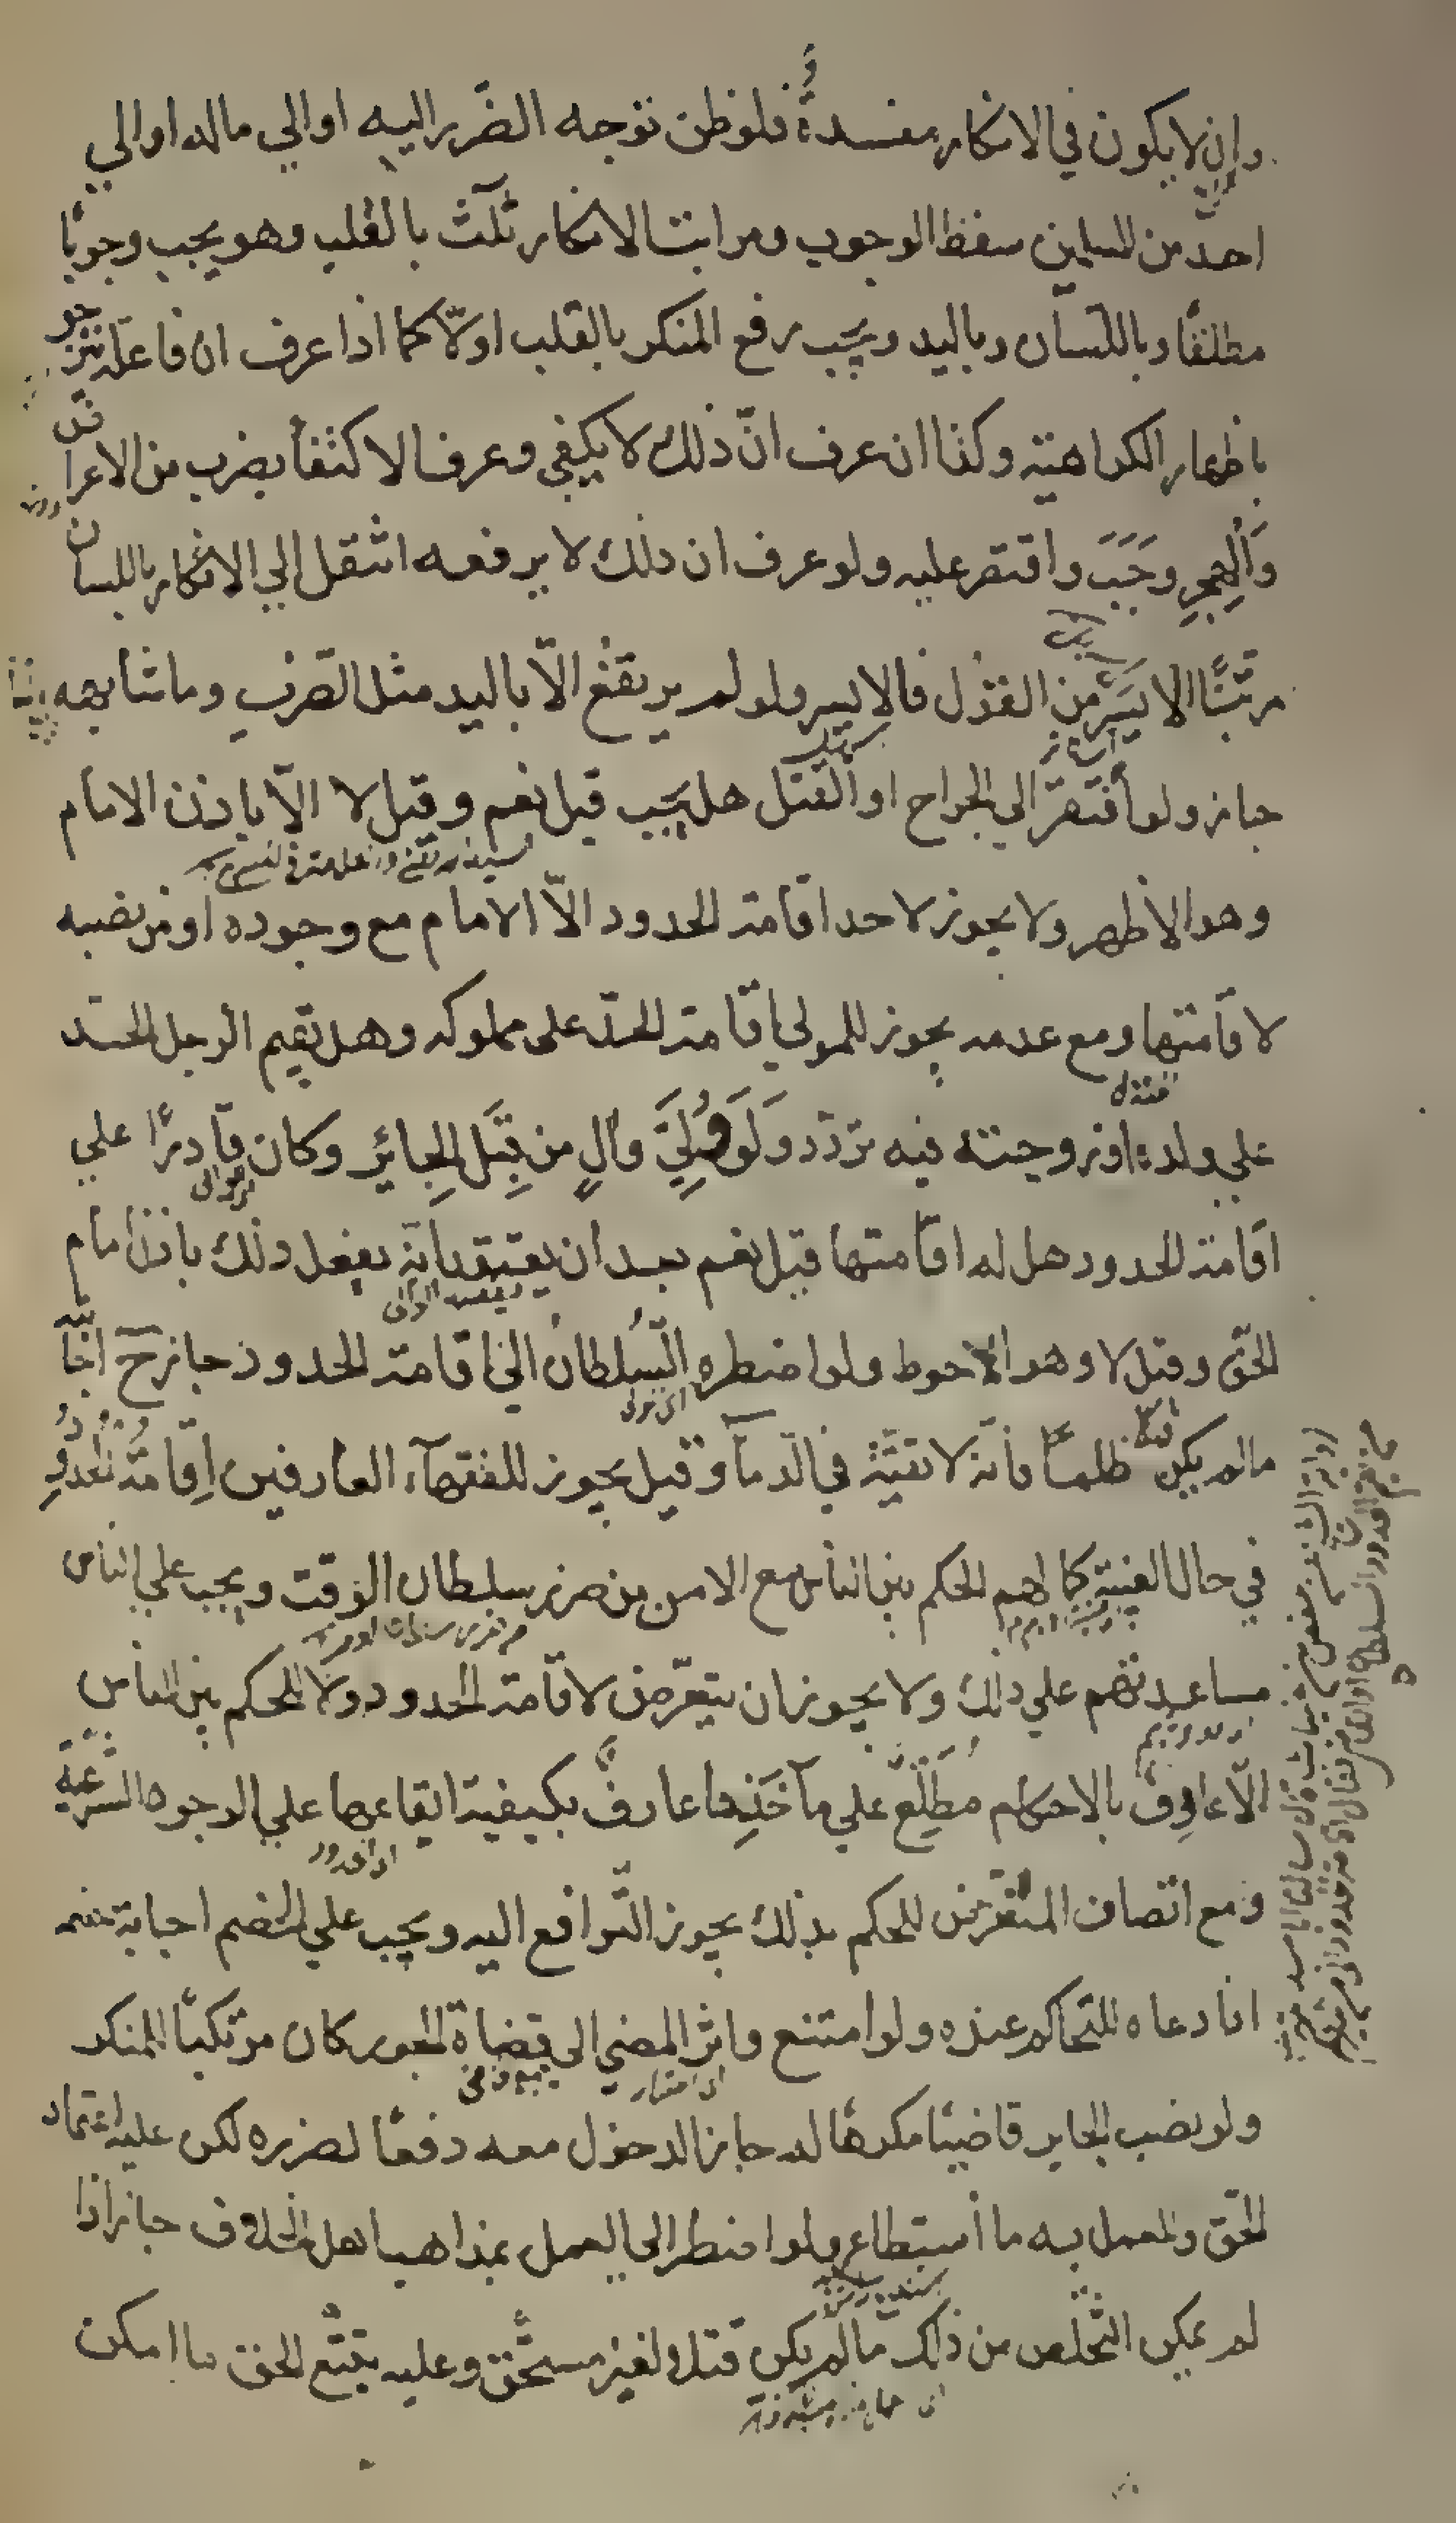 وان لا يكون في الانكار مفسدة فلو ظن توجه الضرر اليه او الي ماله او الي
احد من المسلمين سقط الوجوب ومراتب الانكار ثلث بالقلب وهو يجب وجوبًا
مطلقًا وباللسان وباليد ويجب رفع المنكر بالقلب اولا كما اذا عرف ان فاعله ينزجر
باظهار الكراهية وكذا ان عرف انّ ذلك لا يكفي وعرف الاكتفأ بضرب من الاعراض
وَالهِجرِ وَجَبَ واقتصر عليه ولو عرف ان ذلك لا يرفعه انتقل الي الانكار باللسان
مرتبًا الايسر من القول فالايسر ولو لم يرتفع الّا باليد مثل الضرب وما شابهه
جاز ولو أفتقر الي الجراح او القتل هل يجب قيل نعم وقيل لا الّا باذن الامام
وهو الاظهر ولا يجوز لاحد اقامة الحدود الّا الامام مع وجوده او من نصبه
لاقامتها ومع عدمه يجوز للمولي اقامة الحدّ علي مملوكه وهل يقيم الرجل الحد
علي ولده او زوجته فيه تردّد وَلَو وُلِيَّ والٍ من قِبَل الجائر وكان قادرًا علي
اقامة الحدود هل له اقامتها قيل نعم بعد ان يعتقد انّه يفعل ذلك باذن امام
الحقّ وقيل لا وهو الاحوط ولو اضطره السُلطان الي اقامة الحدود جاز ح اجابته
ما لم يكن قتلا ظلمًا فانّه لا تقيّة في الدمآ وقيل يجوز للفقهآء العارفين اِقامةُ الحدودِ
في حال الغيبة كما لهم الحكم بين الناس مع الامن من ضرر سلطان الوقت ويجب علي الناس
مساعدتهم علي ذلك ولا يجوز ان يتعرّض لاقامة الحدود ولا للحكم بين الناس
الّا عارِف بالاحكام مطّلِع علي مآخَذِها عارفٌ بكيفية ايقاعها علي الوجوه الشرعيّة
ومع اتصاف المتعرّض للحكم بذلك يجوز التّرافع اليه ويجب علي الخصم اجابة خصمه
اذا دعاه للتحاكم عنده ولو امتنع واثر المضي الي قضاة الجور كان مرتكبًا للمنكر
ولو نصب الجاير قاضيًا مكرهًا له جاز الدخول معه دفعًا لضرره لكن عليه اعتماد
الحقّ والعمل به ما أستطاع ولو اضطر الي العمل بمذاهب اهل الخلاف جاز اذا
لم يمكن التّخلص من ذلك ما لم يكن قتلا لغير مستحّق وعليه تتبّع الحق ما امكن